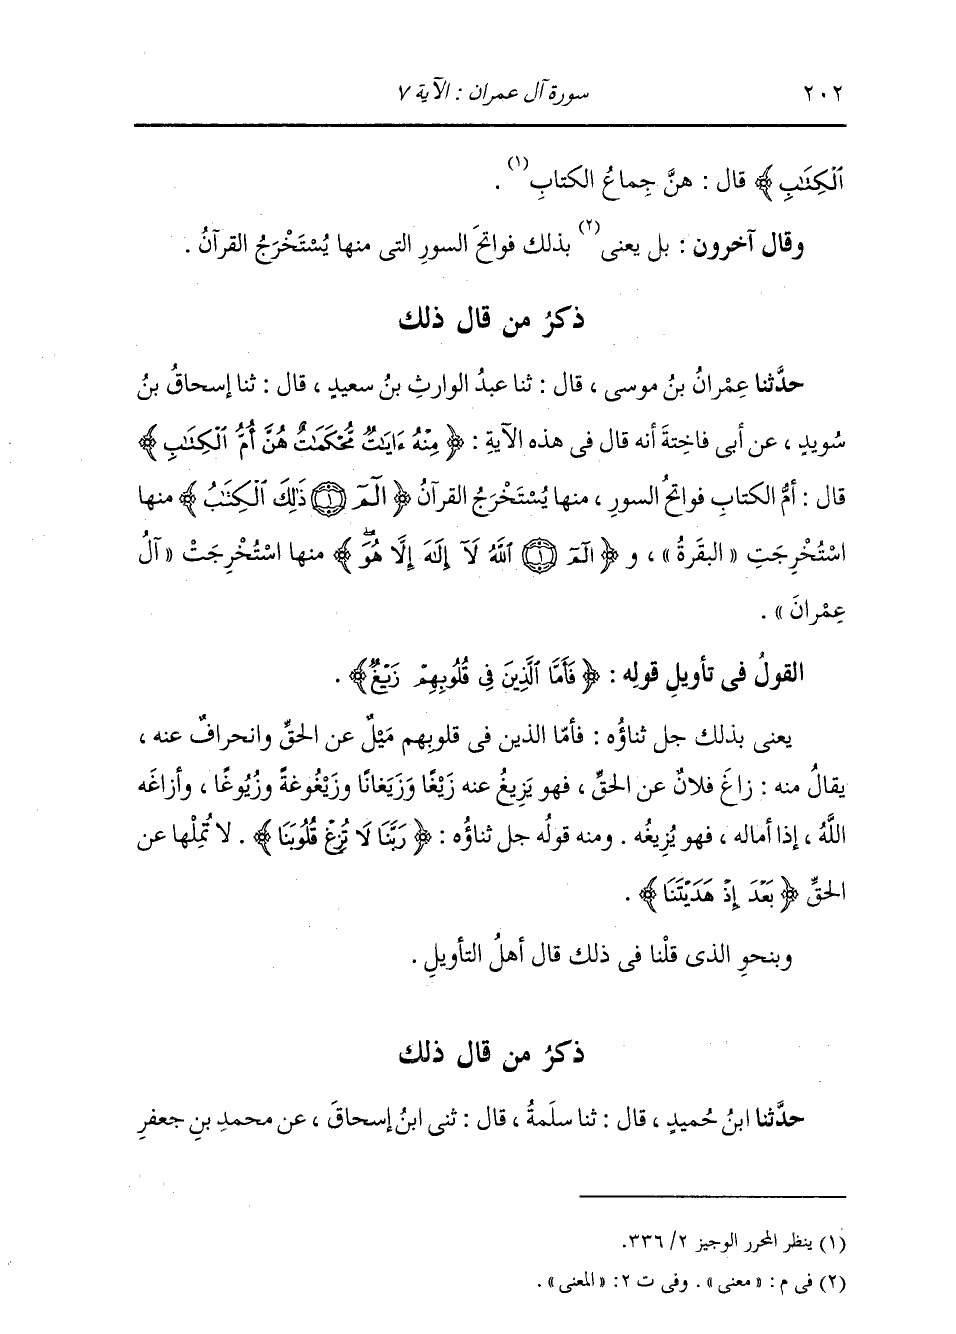 ٢٠٢ سورة آل عمران : الآية ٧
ٱلْكِتَٰبِ ﴾ قال : هنَّ جِماعُ الكتابِ(١) .
وقال آخرون : بل يعنى(٢) بذلك فواتحَ السورِ التى منها يُسْتَخْرَجُ القرآنُ .
ذكرُ من قال ذلك
حدَّثنا عِمْرانُ بنُ موسى ، قال : ثنا عبدُ الوارثِ بنُ سعيدٍ ، قال : ثنا إسحاقُ بنُ
سُويدٍ ، عن أبى فاخِتةَ أنه قال فى هذه الآيةِ : ﴿ مِنْهُ ءَايَٰتٌ مُّحْكَمَٰتٌ هُنَّ أُمُّ ٱلْكِتَٰبِ ﴾
قال : أمُّ الكتابِ فواتحُ السورِ ، منها يُسْتَخْرَجُ القرآنُ ﴿ الٓمٓ ﴿١﴾ ذَٰلِكَ ٱلْكِتَٰبُ ﴾ منها
اسْتُخْرِجَتِ « البقرةُ » ، و ﴿ الٓمٓ ﴿١﴾ ٱللَّهُ لَآ إِلَٰهَ إِلَّا هُوَۖ ﴾ منها اسْتُخْرِجَتْ « آلُ
عِمْرانَ » .
القولُ فى تأويلِ قولِه : ﴿ فَأَمَّا ٱلَّذِينَ فِى قُلُوبِهِمْ زَيْغٌ ﴾ .
يعنى بذلك جل ثناؤُه : فأمّا الذين فى قلوبِهم مَيْلٌ عن الحقِّ وانحرافٌ عنه ،
يقالُ منه : زاغَ فلانٌ عن الحقِّ ، فهو يَزِيغُ عنه زَيْغًا وَزَيَغانًا وزَيْغُوغةً وزُيُوغًا ، وأزاغَه
اللَّهُ ، إذا أماله ، فهو يُزِيغُه . ومنه قولُه جل ثناؤُه : ﴿ رَبَّنَا لَا تُزِغْ قُلُوبَنَا ﴾ . لا تُمِلْها عن
الحقِّ ﴿ بَعْدَ إِذْ هَدَيْتَنَا ﴾ .
وبنحوِ الذى قلْنا فى ذلك قال أهلُ التأويلِ .
ذكرُ من قال ذلك
حدَّثنا ابنُ حُميدٍ ، قال : ثنا سلَمةُ ، قال : ثنى ابنُ إسحاقَ ، عن محمدِ بنِ جعفرِ
(١) ينظر المحرر الوجيز ٢/ ٣٣٦.
(٢) فى م : « معنى » . وفى ت ٢ : « المعنى » .